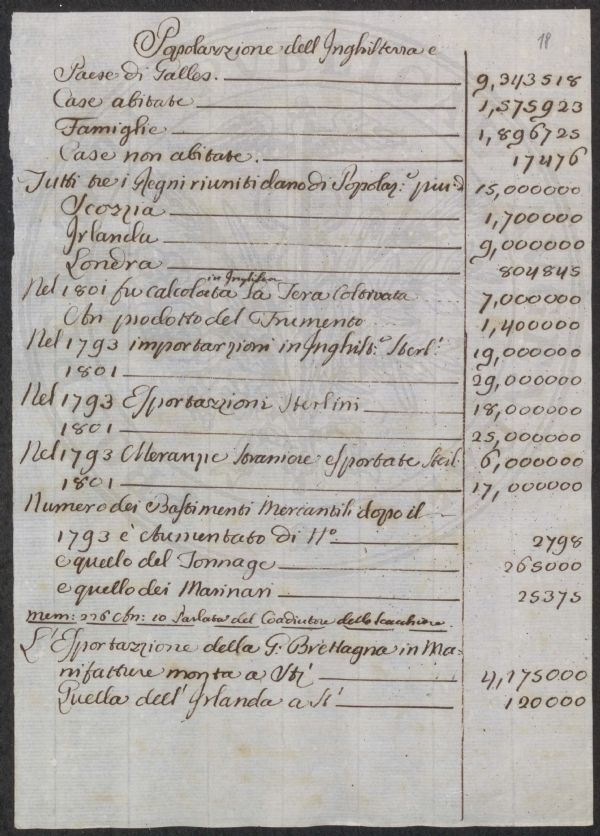 18
Popolazzione dell Inghilterra e
Paese di Galles. 9,343518
Case abitate 1,575923
Famiglie 1,896725
Case non abitate. 17476
Tutti tre i Regni riuniti dano di Popolaz.e piu d 15,000000
Scozzia 1,700000
Irlanda 9,000000
Londra 804845
in Inghilter
Nel 1801 fu calcolata la Tera Coltivata 7,000000
prodotto del Frumento 1,400000
Nel 1793 importazzioni in Inghilt.a Sterl. 19,000000
1801 29,000000
Nel 1793 Esportazzioni Sterlini 18,000000
1801 25,000000
Nel 1793 Meranzie straniere esportate Sterl. 6,000000
1801 17,000000
Numero dei Bastimenti Mercantili dopo il
1793 è Aumentato di No. 2798
e quello del Tonnage 265000
e quello dei Marinari 25375
Mem: 226 An: 10 Parlata del Coadiutore dello Scacchiere.
L'Esportazzione della G. Brettagna in Ma-
nifatture monta a 4,175000
Quella dell' Irlanda a 120000